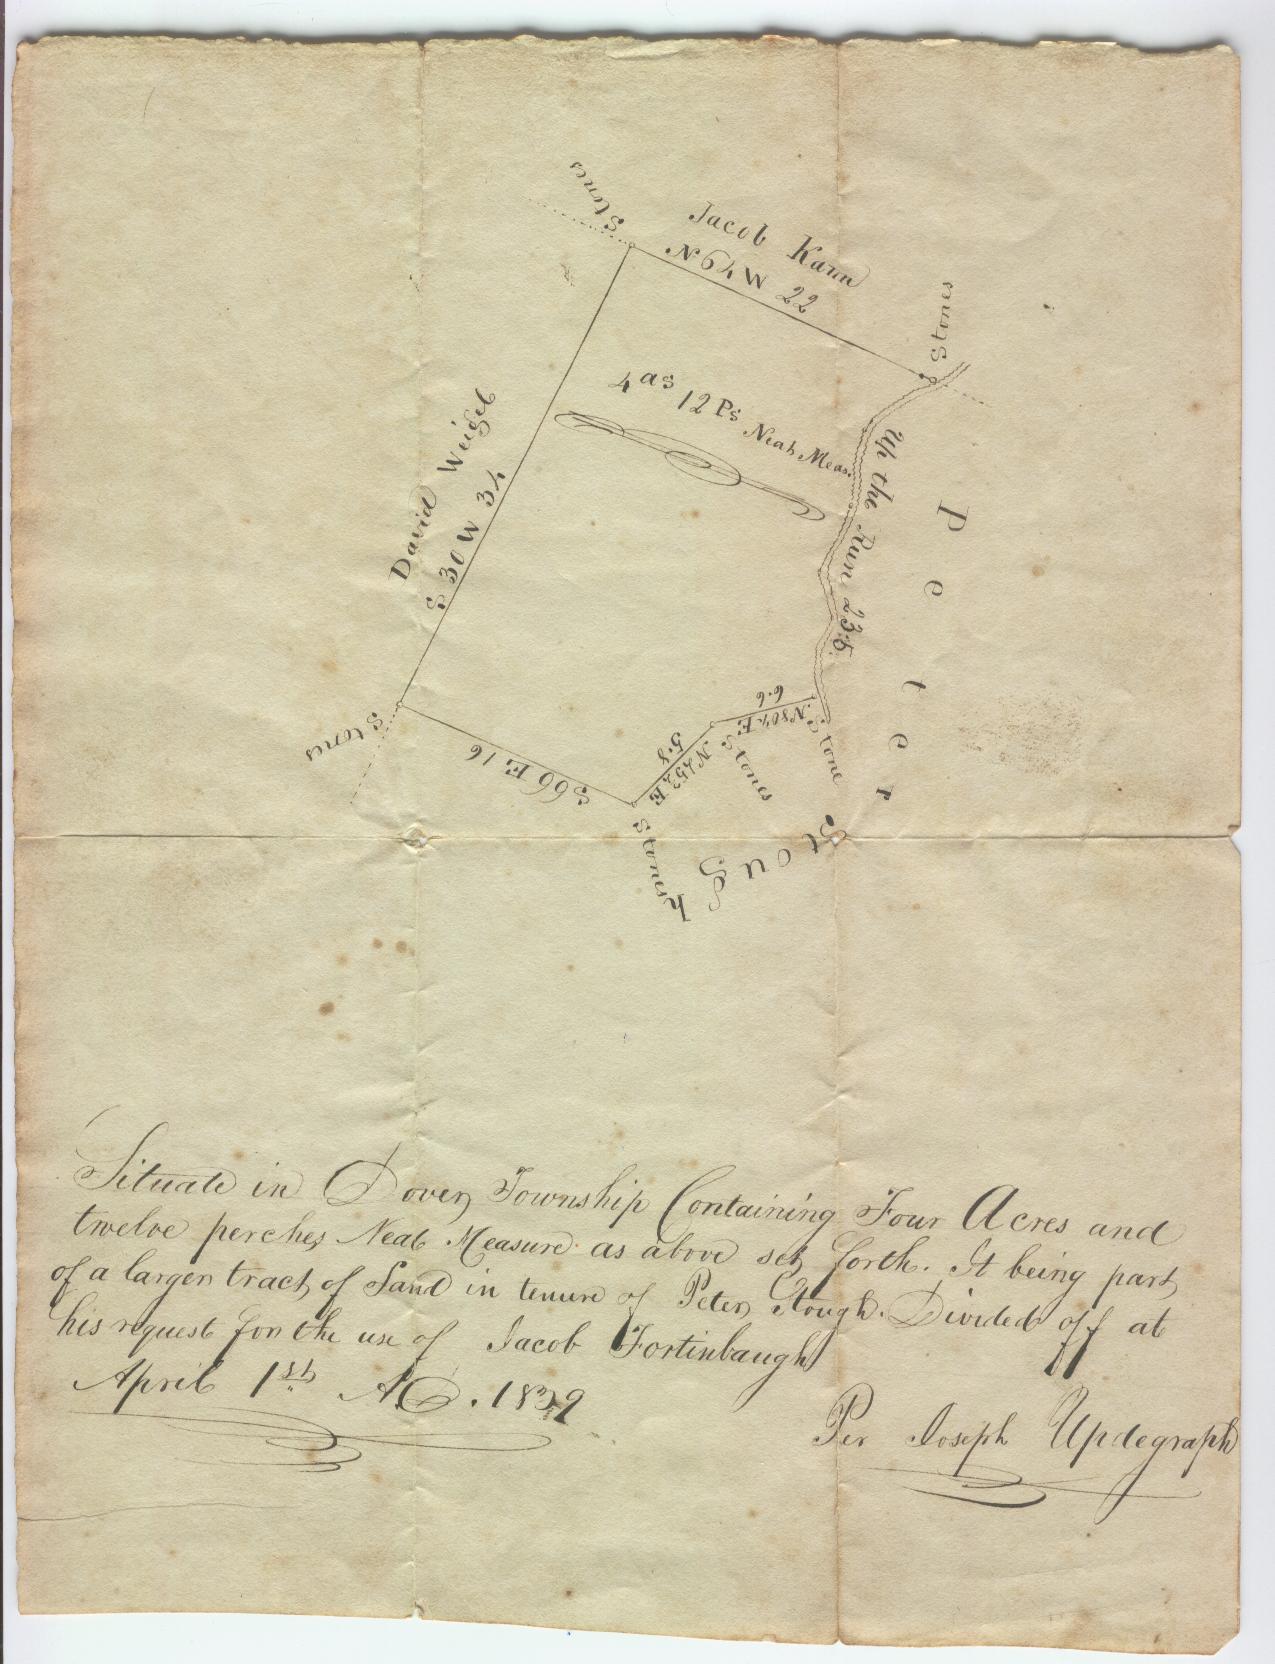 Stones
Jacob Kann
N 64 W 22
Stones
4 as 12 Ps Neat Meas.
David Weigel
S 30 W 34
Up the Run 23.5
Peter Stough
Stones
S 66 E 16
Stones
N 45¾ E
5.8
Stones
N 80½ E
6.6
Stone
Situate in Dover Township Containing Four Acres and
twelve perches Neat Measure as above set forth. It being part
of a larger tract of Land in tenure of Peter Stough. Divided off at
his request for the use of Jacob Fortinbaugh
April 1st A.D. 1839
Per Joseph Updegraph